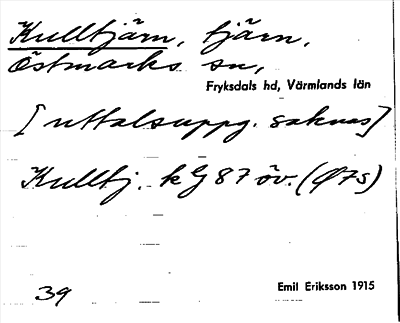 Kulltjärn, tjärn,
Östmarks sn,
Fryksdals hd, Värmlands län
[uttalsuppg. saknas]
Kulltj. kG 87 öv. (Ø7s)
39
Emil Eriksson 1915